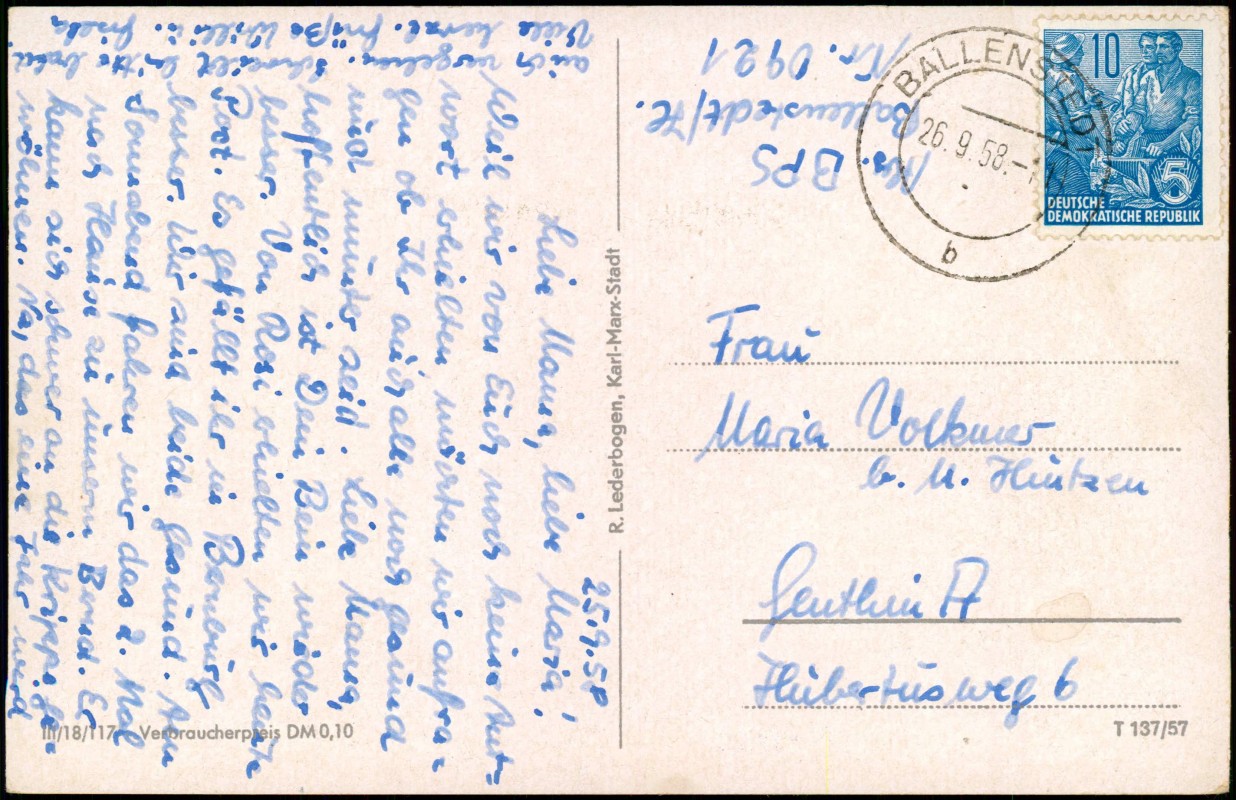 25.9.58
Liebe Mama, liebe Maria!
Weil wir von Euch noch keine Ant-
wort erhielten müssten wir anfra-
gen ob Ihr auch alle noch gesund
und munter seid. Liebe Mama,
hoffentlich ist Dein Bein wieder
besser. Von Rosi erhielten wir heute
Post. Es gefällt ihr in Bernburg
besser. Wir sind beide gesund. Am
Sonnabend fahren wir das 2. Mal
nach Hause zu unserm Bernd. Er
kann sich schwer an die Krippe ge-
wöhnen. Na, das eine Jahr wird
auch vergehen. Schreibt bitte bald.
Viele herzl. Grüße Willi u. Frieda
III/18/117 Verbraucherpreis DM 0,10
R. Lederbogen, Karl-Marx-Stadt
BPS
Ballenstedt/H.
Nr. 0921
BALLENSTEDT
26.9.58.
b
10
5
DEUTSCHE
DEMOKRATISCHE REPUBLIK
Frau
Maria Volkmer
b. U. Hintzen
Genthin A
Hubertusweg 6
T 137/57